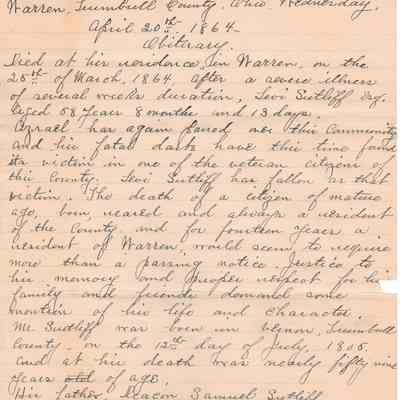 Warren, Trumbull County, Ohio, Wednesday,
April 20th 1864.
Obituary.
Died at his residence, in Warren, on the
25th of March, 1864 after a severe illness
of several weeks duration, Levi Sutliff Esq.
aged 58 years 8 months and 13 days.
Azrael has again passed over this Community
and his fatal darts have this time found
its victim in one of the veteran citizens of
this County. Levi Sutliff has fallen as that
victim. The death of a citizen of mature
age, born, reared and always a resident
of the County and for fourteen years a
resident of Warren, would seem to require
more than a passing notice. Justice to
his memory and proper respect for his
family and friends demand some
mention of his life and character.
Mr. Sutliff was born in Vernon, Trumbull
County, on the 12th day of July, 1805,
and at his death was nearly fifty nine
years old of age.
His father, Deacon Samuel Sutliff